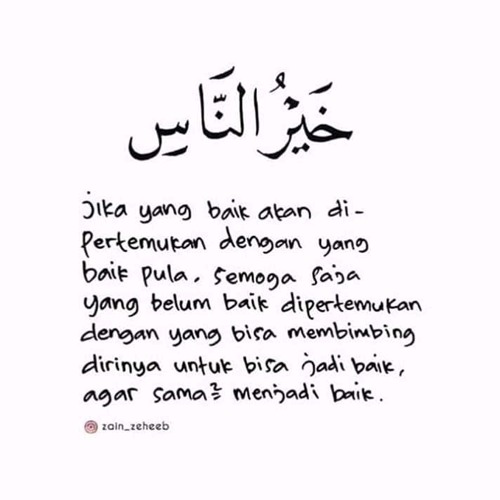 خَيْرُ النَّاسِ
jika yang baik akan di-
pertemukan dengan yang
baik pula. semoga saja
yang belum baik dipertemukan
dengan yang bisa membimbing
dirinya untuk bisa jadi baik,
agar sama² menjadi baik.
zain_zeheeb